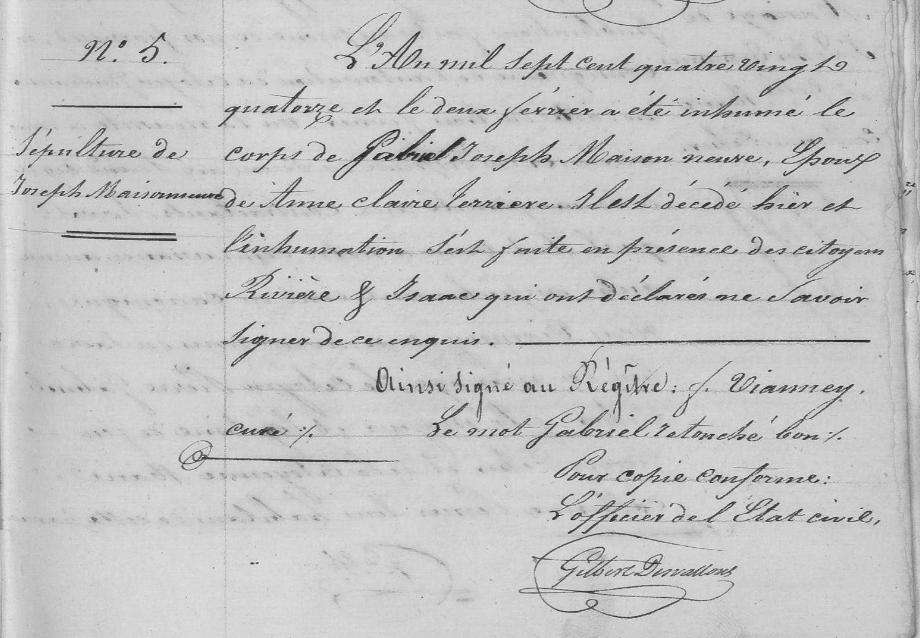 N.° 5.
Sépulture de
Joseph Maisonneuve
L'An mil sept cent quatre vingt
quatorze et le deux février a été inhumé le
corps de Gabriel Joseph Maison neuve, Epoux
de Anne claire Ferriere. Il est décédé hier et
l'inhumation s'est faite en présence des citoyens
Rivière & Isaac qui ont déclarés ne savoir
signer de ce enquis.
Ainsi signé au Régistre: f. Vianney.
curé ·/.
Le mot Gabriel retouché bon ·/.
Pour copie conforme:
L'officier de l'Etat civil,
Gilbert Desvallons